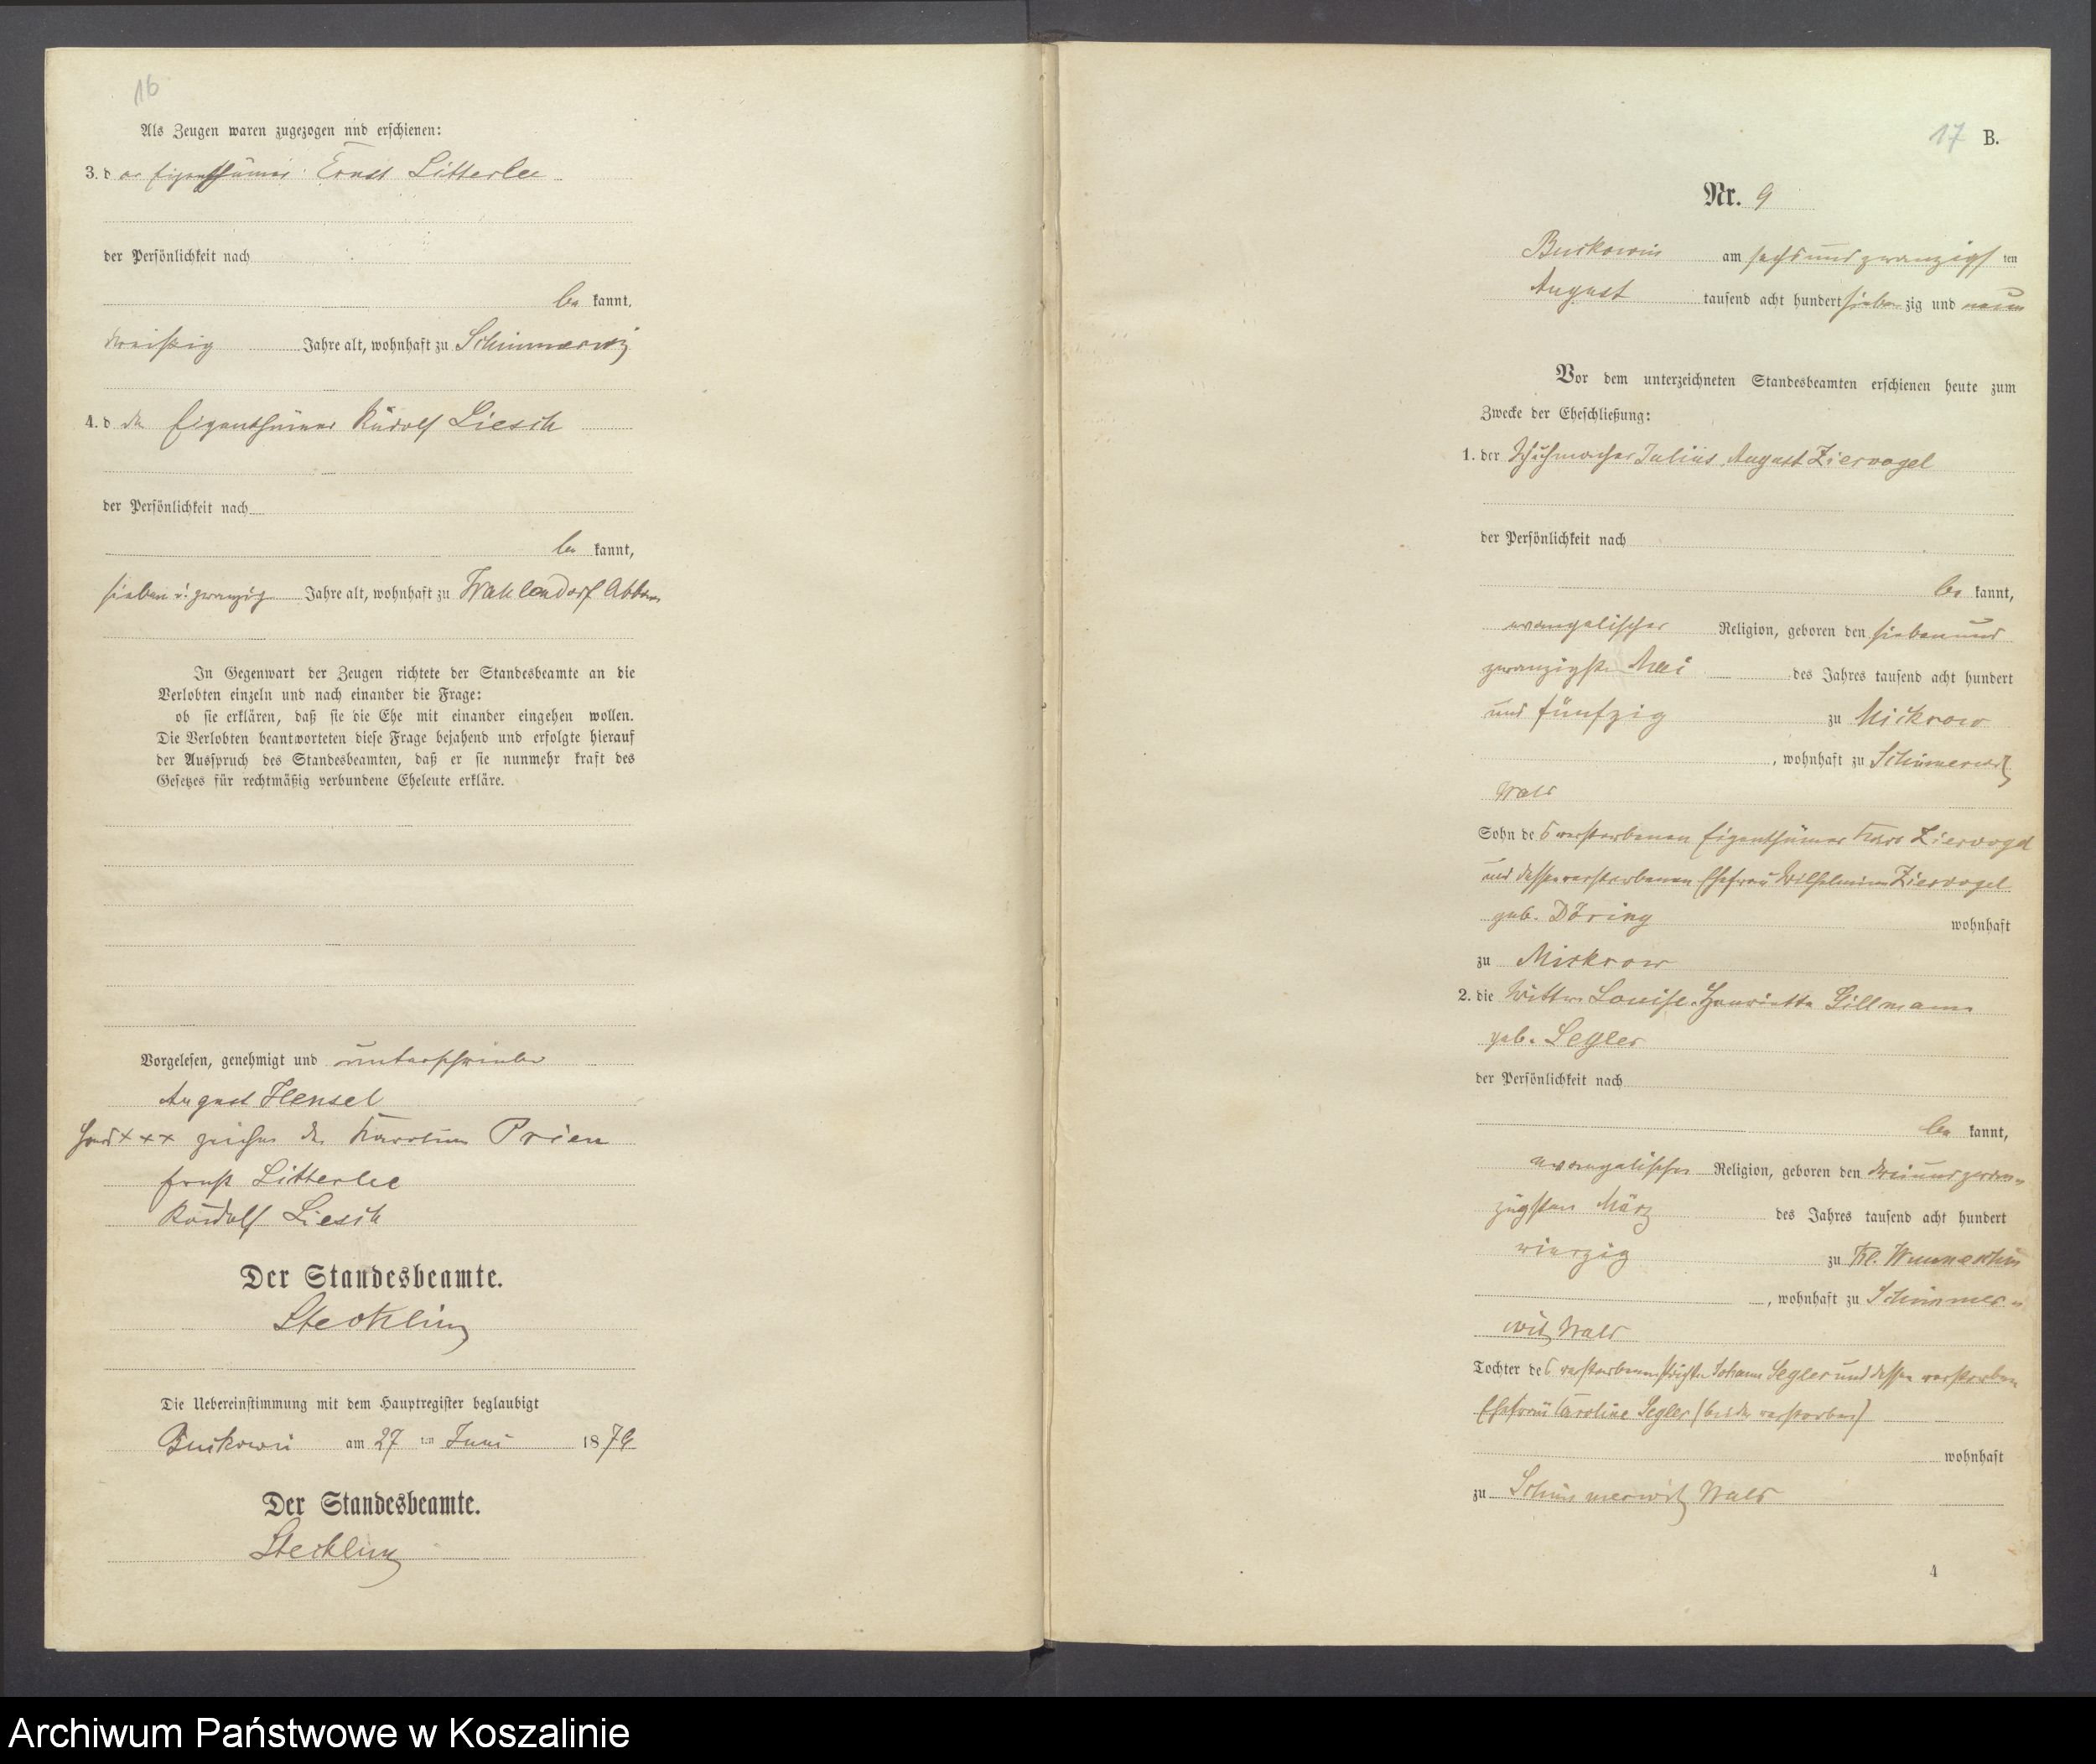 16
Als Zeugen waren zugezogen und erschienen:
3. d er Eigenthümer Ernst Litterlee
der Persönlichkeit nach
be kannt,
dreißig Jahre alt, wohnhaft zu Schimmerwitz
4. d der Eigenthümer Rudolf Liesch
der Persönlichkeit nach
be kannt,
sieben u. zwanzig Jahre alt, wohnhaft zu Wahlendorf Abbau
In Gegenwart der Zeugen richtete der Standesbeamte an die
Verlobten einzeln und nach einander die Frage:
ob sie erklären, daß sie die Ehe mit einander eingehen wollen.
Die Verlobten beantworteten diese Frage bejahend und erfolgte hierauf
der Ausspruch des Standesbeamten, daß er sie nunmehr kraft des
Gesetzes für rechtmäßig verbundene Eheleute erkläre.
Vorgelesen, genehmigt und unterschrieben
August Hensel
Hand xxx zeichen der Karoline Prien
Ernst Litterlee
Rudolf Liesch
Der Standesbeamte.
Steckling
Die Uebereinstimmung mit dem Hauptregister beglaubigt
Buckowin am 27 ten Juni 1879
Der Standesbeamte.
Steckling
17 B.
Nr. 9
Buckowin am sechsundzwanzigs ten
August tausend acht hundert sieben zig und neun
Vor dem unterzeichneten Standesbeamten erschienen heute zum
Zwecke der Eheschließung:
1. der Schuhmacher Julius August Ziervogel
der Persönlichkeit nach
be kannt,
evangelischer Religion, geboren den siebenund
zwanzigsten Mai des Jahres tausend acht hundert
und fünfzig zu Mickrow
, wohnhaft zu Schimmerwitz
Wald
Sohn des verstorbenen Eigenthümer Ziervogel
und dessen verstorbenen Ehefrau Wilhelmine Ziervogel
geb. Döring wohnhaft
zu Mickrow
2. die Wittwe Louise Henriette Gillmann
geb. Segler
der Persönlichkeit nach
be kannt,
evangelischer Religion, geboren den dreiundzwan-
zigsten März des Jahres tausend acht hundert
vierzig zu Kl. Wunneschin
, wohnhaft zu Schimmer-
witz Wald
Tochter des verstorbenen Johann Segler und dessen verstorbenen
Ehefrau Caroline Segler (beide verstorben)
wohnhaft
zu Schimmerwitz Wald
4
Archiwum Państwowe w Koszalinie